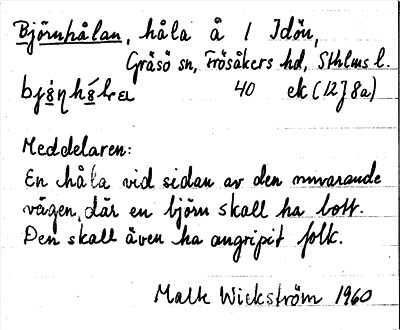 Björnhålan, håla å 1 Idön,
Gräsö sn, Frösåkers hd, Sthlms l.
40 ek (12J8a)
Meddelaren:
En håla vid sidan av den nuvarande
vägen, där en björn skall ha bott.
Den skall även ha angripit folk.
Malte Wickström 1960